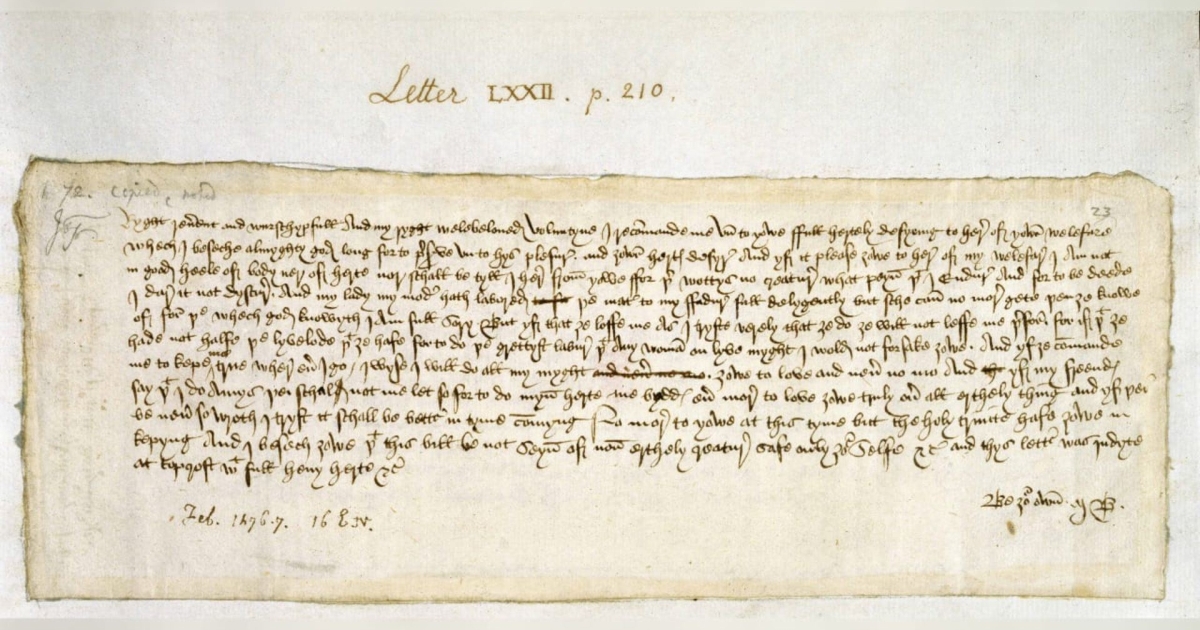 Letter LXXII. p. 210.
72. copied,
23
Ryght reuerent and wurschypfull And my ryght welebeloued Voluntyne I recomande me vn to yowe ffull hertely desyring to here of yowr welefare
whech I beseche almyghty god long for to preserve vn to hys plesure and yowr hertys desyre And yf it please yowe to here of my welefare I Am not
in good heele of body ner of herte nor schall be tyll I here from yowe ffor þer wottys no creature what peyn þat I Endure And for to be deede
I dare it not dyscure. And my lady my moder hath labored þe mater to my ffadure full delygently but sche can no more gete þen ȝe knowe
of for þe whech god knowyth I Am full sory But yf that ȝe loffe me As I tryste verely that ȝe do ȝe will not leffe me þerfor. for if þat ȝe
hade not halfe þe lyvelode þat ȝe hafe for to do þe grettyst labure þat Any woman on lyve myght I wold not forsake yowe. And yf ȝe comande
me to kepe me true wher euer I go / I wyse I will do all my myght and neuer no mo. yowe to love and neuer no mo And yf my freendys
say þat I do Amys þei schall not me let so for to do myn herte me bydds euer more to love yowe truly ouer all erthely thing and yf þei
be neuer so wroth I tryst it schall be better in tyme comyng No more to yowe at this tyme but the holy trinite hafe yowe in
kepyng And I besech yowe þat this bill be not Seyn of non erthely creature safe only yowr Selfe &c and thys letter was indyte
at topcroft wt full heuy herte &c
Be yowr own M B.
Feb. 1476-7. 16 E IV.